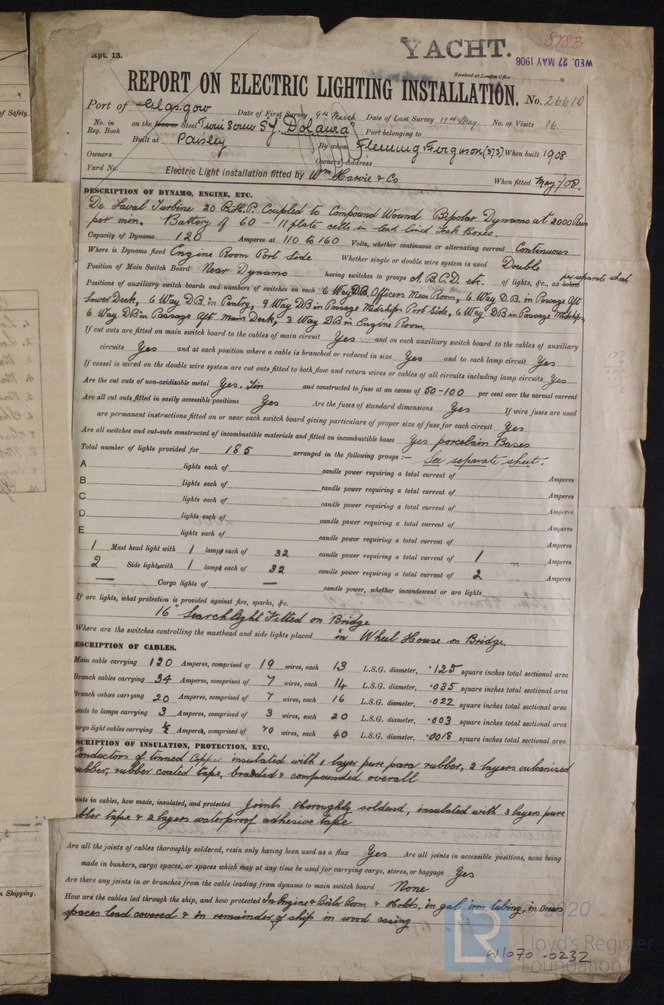 YACHT.
8783
Rpt. 13.
WED. 27 MAY 1908
Received at London Office
REPORT ON ELECTRIC LIGHTING INSTALLATION. No. 26610
Port of Glasgow Date of First Survey 9th March Date of Last Survey 18th May No. of Visits 16
No. in Reg. Book on the Iron or Steel Twin Screw S.Y. "Dolaura" Port belonging to
Built at Paisley By whom Fleming & Ferguson (373) When built 1908
Owners Owners' Address
Yard No. Electric Light Installation fitted by Wm Harvie & Co When fitted May/08.
DESCRIPTION OF DYNAMO, ENGINE, ETC.
De Laval Turbine 20 B.H.P. Coupled to Compound Wound Bipolar Dynamo at 2000 Revs
per min. Battery of 60 - 11 plate cells in lead lined teak boxes.
Capacity of Dynamo 120 Amperes at 110 to 160 Volts, whether continuous or alternating current Continuous
Where is Dynamo fixed Engine Room Port Side Whether single or double wire system is used Double
Position of Main Switch Board Near Dynamo having switches to groups A.B.C.D. etc. of lights, &c., as below per separate sheet
Positions of auxiliary switch boards and numbers of switches on each 6 Way D.B. Officers Mess Room, 6 Way D.B. in Passage Aft
Lower Deck, 6 Way D.B. in Pantry, 9 Way D.B. in Passage Midships Port Side, 6 Way D.B. in Passage Midships
6 Way D.B. in Passage Aft Main Deck, 3 Way D.B. in Engine Room.
If cut outs are fitted on main switch board to the cables of main circuit Yes and on each auxiliary switch board to the cables of auxiliary
circuits Yes and at each position where a cable is branched or reduced in size Yes and to each lamp circuit Yes
If vessel is wired on the double wire system are cut outs fitted to both flow and return wires or cables of all circuits including lamp circuits Yes
Are the cut outs of non-oxidizable metal Yes. Tin and constructed to fuse at an excess of 50-100 per cent over the normal current
Are all cut outs fitted in easily accessible positions Yes Are the fuses of standard dimensions Yes If wire fuses are used
are permanent instructions fitted on or near each switch board giving particulars of proper size of fuse for each circuit Yes
Are all switches and cut-outs constructed of incombustible materials and fitted on incombustible bases Yes porcelain Bases
Total number of lights provided for 185 arranged in the following groups:— See separate sheet.
A lights each of candle power requiring a total current of Amperes
B lights each of candle power requiring a total current of Amperes
C lights each of candle power requiring a total current of Amperes
D lights each of candle power requiring a total current of Amperes
E lights each of candle power requiring a total current of Amperes
1 Mast head light with 1 lamps each of 32 candle power requiring a total current of 1 "
2 Side lights with 1 lamps each of 32 candle power requiring a total current of 2 Amperes
— Cargo lights of — candle power, whether incandescent or arc lights
If arc lights, what protection is provided against fire, sparks, &c.
16" Searchlight Fitted on Bridge
Where are the switches controlling the masthead and side lights placed in Wheel House on Bridge.
ESCRIPTION OF CABLES.
Main cable carrying 120 Amperes, comprised of 19 wires, each 13 L.S.G. diameter, .125 square inches total sectional area
Branch cables carrying 34 Amperes, comprised of 7 wires, each 14 L.S.G. diameter, .035 square inches total sectional area
Branch cables carrying 20 Amperes, comprised of 7 wires, each 16 L.S.G. diameter, .022 square inches total sectional area
eads to lamps carrying 3 Amperes, comprised of 3 wires, each 20 L.S.G. diameter, .003 square inches total sectional area
argo light cables carrying Amperes, comprised of 70 wires, each 40 L.S.G. diameter, .0018 square inches total sectional area
SCRIPTION OF INSULATION, PROTECTION, ETC.
Conductors of tinned Copper insulated with 1 layer pure para rubber, 2 layers vulcanized
ubber, rubber coated tape, braided & compounded overall
ints in cables, how made, insulated, and protected Joints thoroughly soldered, insulated with 3 layers pure
bber tape & 2 layers waterproof adhesive tape
Are all the joints of cables thoroughly soldered, resin only having been used as a flux Yes Are all joints in accessible positions, none being
made in bunkers, cargo spaces, or spaces which may at any time be used for carrying cargo, stores, or baggage Yes
Are there any joints in or branches from the cable leading from dynamo to main switch board None
How are the cables led through the ship, and how protected In Engine & Boiler Room, & Holds, in gal. iron tubing, in crews
spaces lead covered & in remainder of ship in wood casing
LR
2020
Lloyd's Register
Foundation
W1070-0232
of Safety.
n Shipping.